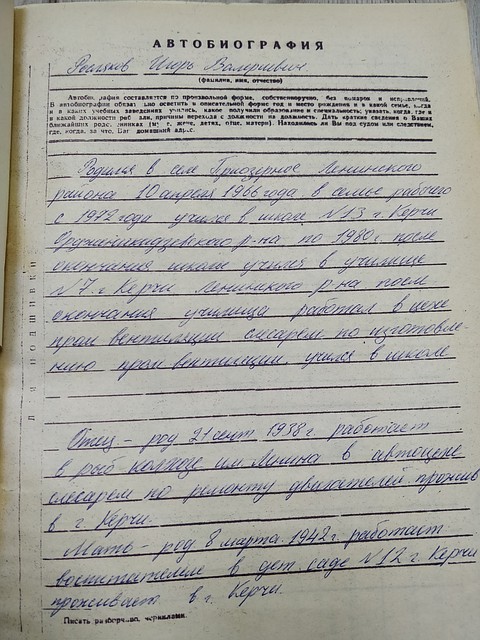 АВТОБИОГРАФИЯ
Росляков Игорь Валериевич
(фамилия, имя, отчество)
Автобиография составляется по произвольной форме, собственноручно, без помарок и исправлений.
В автобиографии обязательно осветить в описательной форме год и место рождения и в какой семье, когда
и в каких учебных заведениях учились, какое получили образование и специальность; указать, когда и
в какой должности работали, причины перехода с должности на должность. Дать краткие сведения о Ваших
ближайших родственниках (муже, жене, детях, отце, матери). Находились ли Вы под судом или следствием,
где, когда, за что. Ваш домашний адрес.
Родился в селе Приозерное Ленинского
района 10 апреля 1966 года в семье рабочего
с 1972 года учился в школе №13 г. Керчи
Орджоникидзевского р-на по 1980 г. после
окончания школы учился в училище
№7 г. Керчи Ленинского р-на после
окончания училища работал в цехе
пром вентиляции слесарем по изготовле-
нию пром вентиляции, учился в школе
Отец - род 21 сент 1938 г. работает
в рыб колхозе им Ленина в автоцехе
слесарем по ремонту двигателей прожив
в г. Керчи.
Мать - род 8 марта 1942 г. работает
воспитателем в дет. саде №12 г. Керчи
проживает в г. Керчи.
Писать разборчиво, чернилами.
Для подшивки